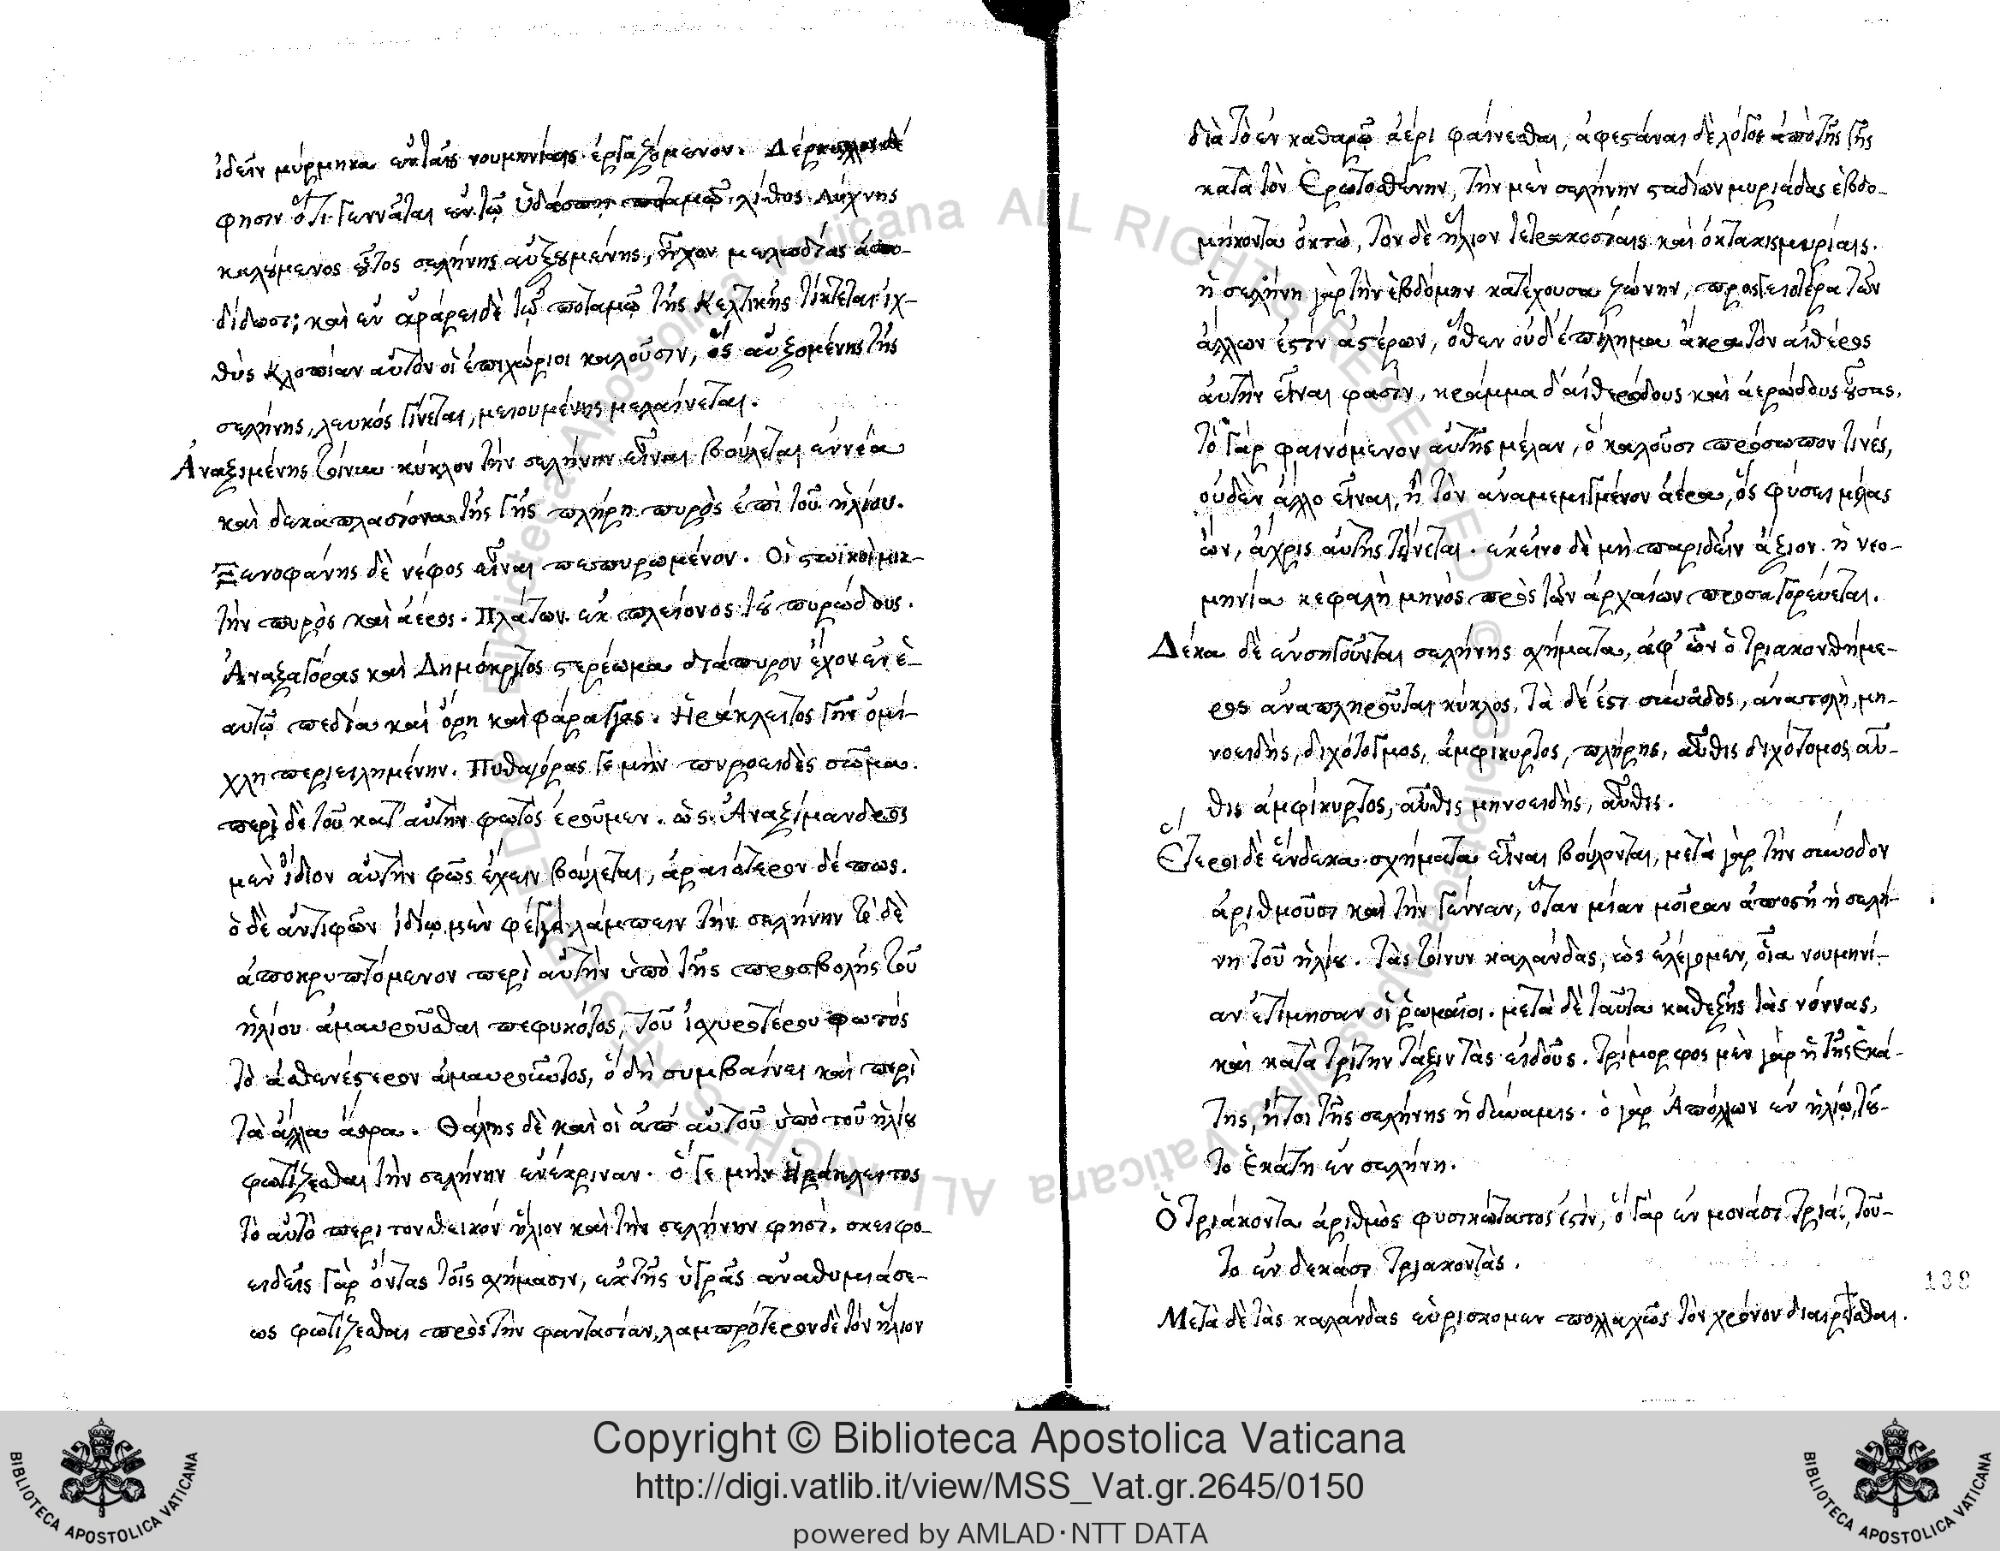 ἰδεῖν μύρμηκα ἐν ταῖς νουμηνίαις ἐργαζόμενον. Δέρκυλλος δέ
φησιν ὅτι γεννᾶται ἐν τῷ Ὑδάσπῃ ποταμῷ λίθος λύχνης
καλούμενος οὗτος σελήνης αὐξουμένης, ἦχον μελωδίας ἀπο-
δίδωσι; καὶ ἐν ἀράρει δὲ τῷ ποταμῷ τῆς Κελτικῆς τίκτεται ἰχ-
θὺς κλοπίαν αὐτὸν οἱ ἐπιχώριοι καλοῦσιν, ὃς αὐξομένης τῆς
σελήνης, λευκός γίνεται, μειουμένης μελαίνεται.
Ἀναξιμένης τοίνυν κύκλον τὴν σελήνην εἶναι βούλεται ἐννέα
καὶ δεκαπλασίονα τῆς γῆς πλήρη πυρὸς ἐπὶ τοῦ ἡλίου.
Ξενοφάνης δὲ νέφος εἶναι πεπυρωμένον. Οἱ στωϊκοὶ μικ-
τὴν πυρὸς καὶ ἀέρος. Πλάτων ἐκ πλείονος τοῦ πυρώδους.
Ἀναξαγόρας καὶ Δημόκριτος στερέωμα διάπυρον ἔχον ἐν ἑ-
αυτῷ πεδία καὶ ὄρη καὶ φάραγγας. Ἡράκλειτος γῆν ὀμί-
χλῃ περιειλημένην. Πυθαγόρας γε μὴν πυροειδὲς σῶμα.
περὶ δὲ τοῦ κατ' αὐτὴν φωτὸς ἐροῦμεν. ὡς Ἀναξίμανδρος
μὲν ἴδιον αὐτὴν φῶς ἔχειν βούλεται, ἀραιότερον δέ πως.
ὁ δὲ ἀντιφῶν ἰδίῳ μὲν φέγγει λάμπειν τὴν σελήνην τὸ δὲ
ἀποκρυπτόμενον περὶ αὐτὴν ὑπὸ τῆς προσβολῆς τοῦ
ἡλίου ἀμαυροῦσθαι πεφυκότος, τοῦ ἰσχυροτέρου φωτός
τὸ ἀσθενέστερον ἀμαυροῦντος, ὃ δὴ συμβαίνει καὶ περὶ
τὰ ἄλλα ἄστρα. Θάλης δὲ καὶ οἱ ἀπ' αὐτοῦ ὑπὸ τοῦ ἡλίου
φωτίζεσθαι τὴν σελήνην ἐνέκριναν. ὅ γε μὴν Ἡράκλειτος
τὸ αὐτὸ περι τονθεικόν ἥλιον καὶ τὴν σελήνην φησί. σκειφο-
ειδεῖς γὰρ ὄντας τοῖς σχήμασιν, ἐκ τῆς ὑγρᾶς ἀναθυμιάσε-
ως φωτίζεσθαι πρὸς τὴν φαντασίαν, λαμπρότερον δὲ τὸν ἥλιον
διὰ τὸ ἐν καθαρῷ ἀέρι φαίνεσθαι, ἀφεστάναι δὲ λόγος ἀπὸ τῆς γῆς
κατὰ τὸν Ἐρωτοσθένην, τὴν μὲν σελήνην σταδίων μυριάδας ἑβδο-
μήκοντα ὀκτώ, τὸν δὲ ἥλιον τετρακοσίαις καὶ ὀκτακισμυρίαις.
ἡ σελήνη γὰρ τὴν ἑβδόμην κατέχουσα ζώνην, προσγειοτέρα τῶν
ἄλλων ἐστὶν ἀστέρων, ὅθεν οὐδ' ἐπίλημα ἀκρατον αἰθέρος
αὐτὴν εἶναι φασὶν, κράμμα δ' αἰθερώδους καὶ ἀερώδους οὖσας.
τὸ γὰρ φαινόμενον αὐτῆς μέλαν, ὃ καλοῦσι πρόσωπον τινές,
οὐδὲν ἄλλο εἶναι, ἢ τὸν ἀναμεμιγμένον ἀέρα, ὃς φύσει μέλας
ὤν, ἄχρις αὐτῆς τείνεται. ἐκεῖνο δὲ μὴ παριδεῖν ἄξιον. ἡ νεο-
μηνία κεφαλὴ μηνὸς πρὸς τῶν ἀρχαίων προσαγορεύεται.
Δέκα δὲ εἰσηγοῦνται σελήνης σχήματα, ἀφ' ὧν ὁ τριακονθήμε-
ρος ἀναπληροῦται κύκλος, τὰ δέ ἐστι σύνοδος, ἀνατολὴ, μη-
νοειδὴς, διχότομος, ἀμφίκυρτος, πλήρης, αὖθις διχότομος αὖ-
θις ἀμφίκυρτος, αὖθις μηνοειδὴς, αὖθις.
Ἕτεροι δὲ ἕνδεκα σχήματα εἶναι βούλονται, μετὰ γὰρ τὴν σύνοδον
ἀριθμοῦσι καὶ τὴν γένναν, ὅταν μίαν μοῖραν ἀποστῇ ἡ σελή-
νη τοῦ ἡλίου. τὰς τοίνυν καλάνδας, ὡς ἐλέγομεν, οἷα νουμηνί-
αν ἐτίμησαν οἱ ῥωμαῖοι. μετὰ δὲ ταῦτα καθεξῆς τὰς νόννας,
καὶ κατὰ τρίτην τάξιν τὰς εἰδοῦς. τρίμορφος μὲν γὰρ ἡ τῆς Ἑκά-
της, ἤτοι τῆς σελήνης ἡ δύναμις. ὁ γὰρ Ἀπόλλων ἐν ἡλίῳ, τοῦ-
το Ἑκάτη ἐν σελήνῃ.
Ὁ τριάκοντα ἀριθμὸς φυσικώτατος ἐστὶν, ὃ γὰρ ἐν μονάσι τριάς, τοῦ-
το ἐν δεκάσι τριακοντάς.
Μετὰ δὲ τὰς καλάνδας εὑρίσκομεν πολλαχῶς τὸν χρόνον διαιρεῖσθαι.
138
© Biblioteca Apostolica Vaticana ALL RIGHTS RESERVED
Copyright © Biblioteca Apostolica Vaticana
http://digi.vatlib.it/view/MSS_Vat.gr.2645/0150
powered by AMLAD·NTT DATA
BIBLIOTECA APOSTOLICA VATICANA
BIBLIOTECA APOSTOLICA VATICANA